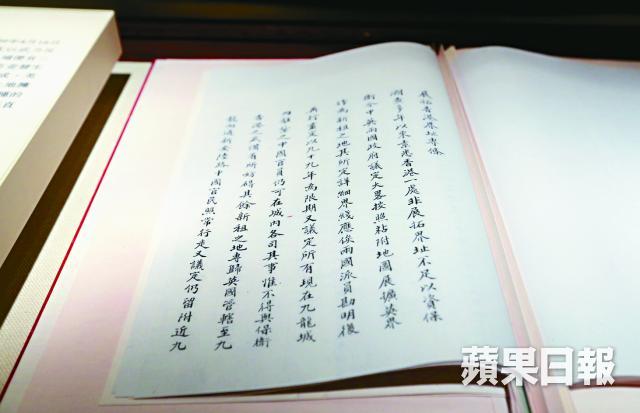 展拓香港界址專條
溯查多年以來素悉香港一處非展拓界址不足以資保
衛今中英兩國政府議定大畧按照粘附地圖展擴英界
作為新租之地其所定詳細界綫應俟兩國派員勘明後
再行畫定以九十九年為限期又議定所有現在九龍城
內駐紮之中國官員仍可在城內各司其事惟不得與保衛
香港之武備有所妨碍其餘新租之地專歸英國管轄至九
龍向通新安陸路中國官民照常行走又議定仍留附近九
蘋果日報